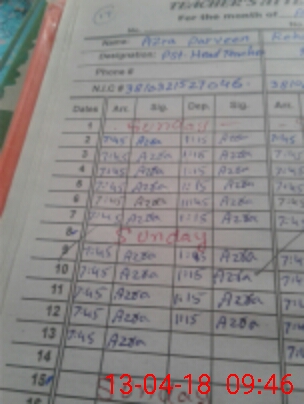 TEACHER'S ATTE
For the month of
Name: Azra Parveen
Designation: PST. Head Teacher
Phone #
N.I.C #
Dates Arr. Sig. Dep. Sig. Arr.
1 Sunday
2 7:45 Azra 1:15 Azra 7:4
3 7:45 Azra 1:15 Azra 7:4
4 7:45 Azra 1:15 Azra 7:4
5 7:45 Azra 1:15 Azra 7:4
6 7:45 Azra 11:45 Azra 7:4
7 7:45 Azra 1:15 Azra 7:4
8 Sunday
9 7:45 Azra 1:15 Azra 7:4
10 7:45 Azra 1:15 Azra
11 7:45 Azra 1:15 Azra 7:4
12 7:45 Azra 1:15 Azra 7:4
13 7:45 Azra 7:4
14
15
13-04-18 09:46